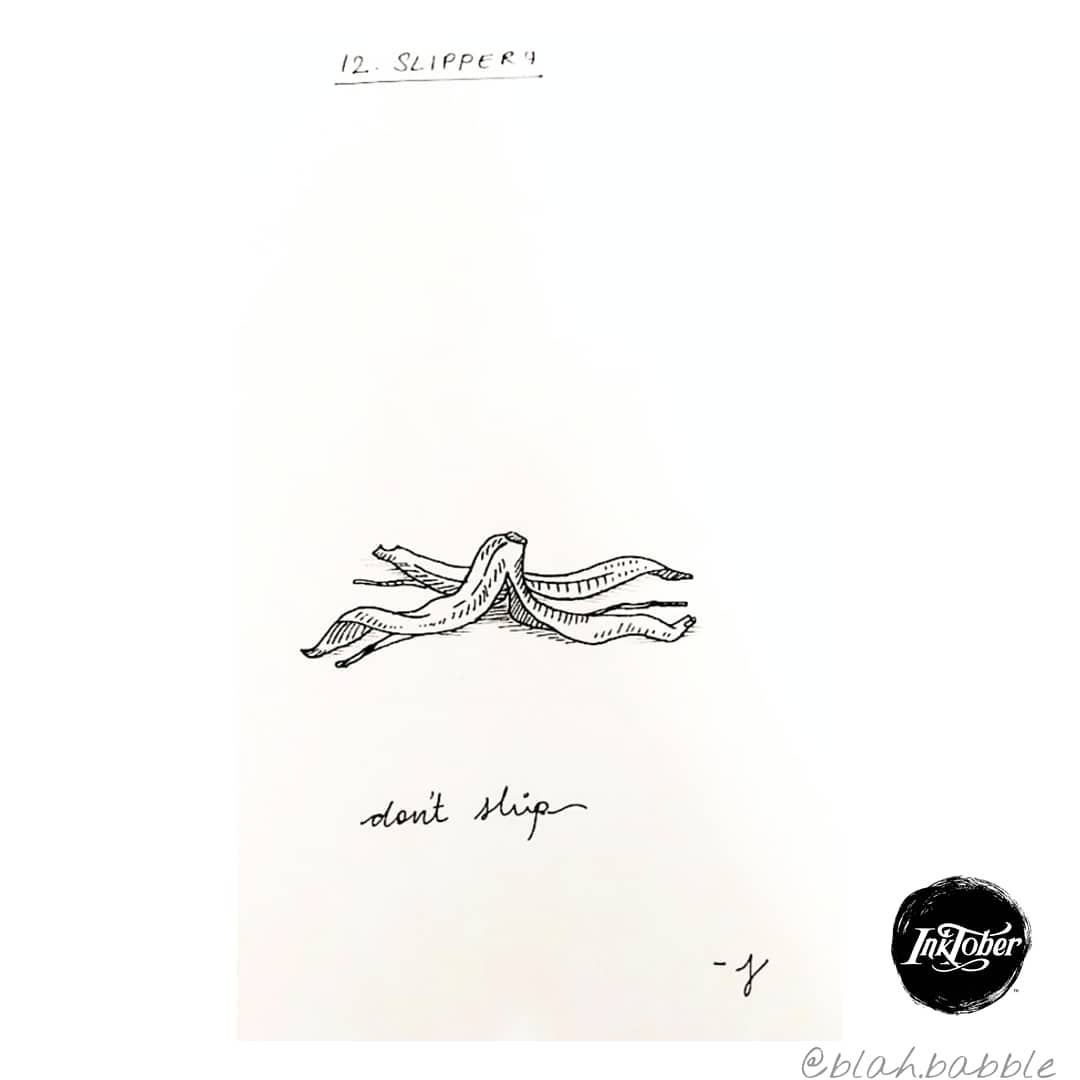 12. SLIPPERY
don't slip
- J
InkTober
TM
@blah.babble